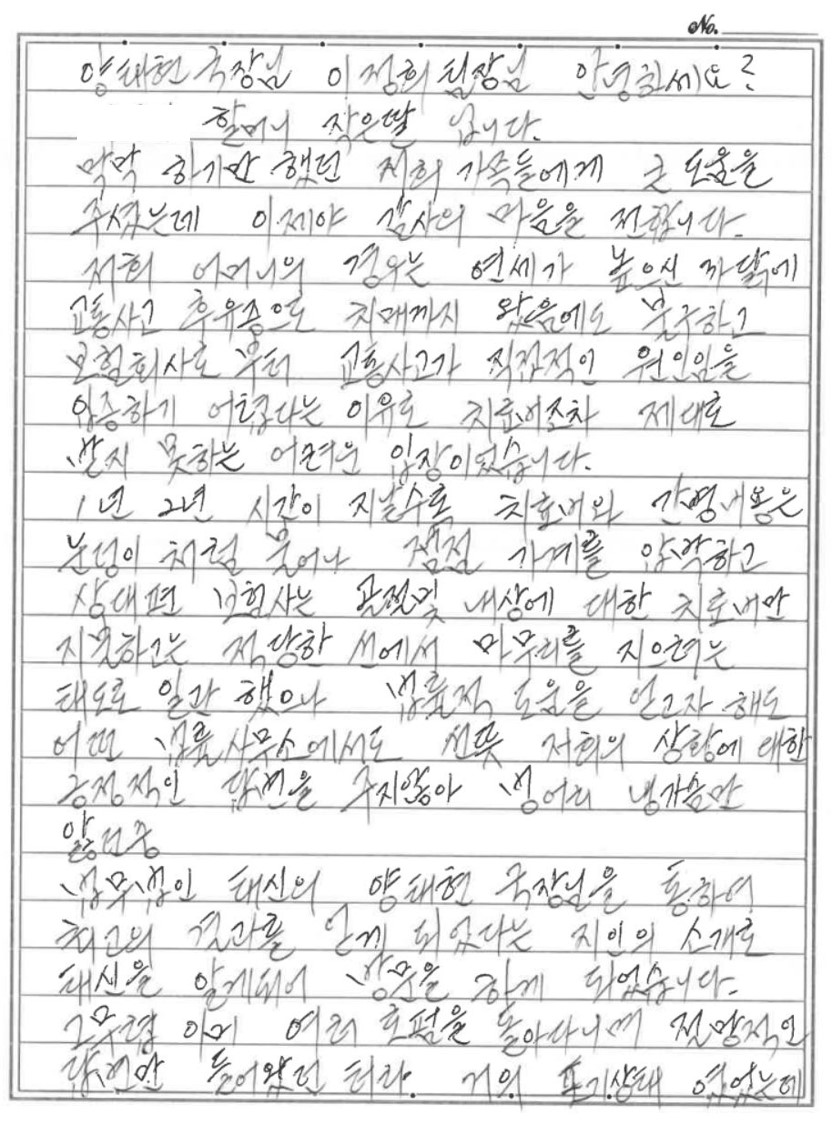 No.
양태현 국장님 이정희 팀장님 안녕하세요?
할머니 작은딸 입니다.
막막 하기만 했던 저희 가족들에게 큰 도움을
주셨는데 이제야 감사의 마음을 전합니다.
저희 어머니의 경우는 연세가 높으신 까닭에
교통사고 후유증으로 치매까지 왔음에도 불구하고
보험회사로 부터 교통사고가 직접적인 원인임을
입증하기 어렵다는 이유로 치료비조차 제대로
받지 못하는 어려운 입장이었습니다.
1년 2년 시간이 지날수록 치료비와 간병비용은
눈덩이 처럼 불어나 점점 가계를 압박하고
상대편 보험사는 골절및 뇌상에 대한 치료비만
지불하고는 적당한 선에서 마무리를 지으려는
태도로 일관 했으나 법률적 도움을 얻고자 해도
어떤 법률사무소에서도 선뜻 저희의 상황에 대한
긍정적인 답변을 주지않아 벙어리 냉가슴만
앓던중
법무법인 태신의 양태현 국장님을 통하여
최고의 결과를 얻게 되었다는 지인의 소개로
태신을 알게되어 방문을 하게 되었습니다.
그무렵 이미 여러 로펌을 돌아다니며 절망적인
답변만 들어왔던 터라. 거의 포기상태 였었는데